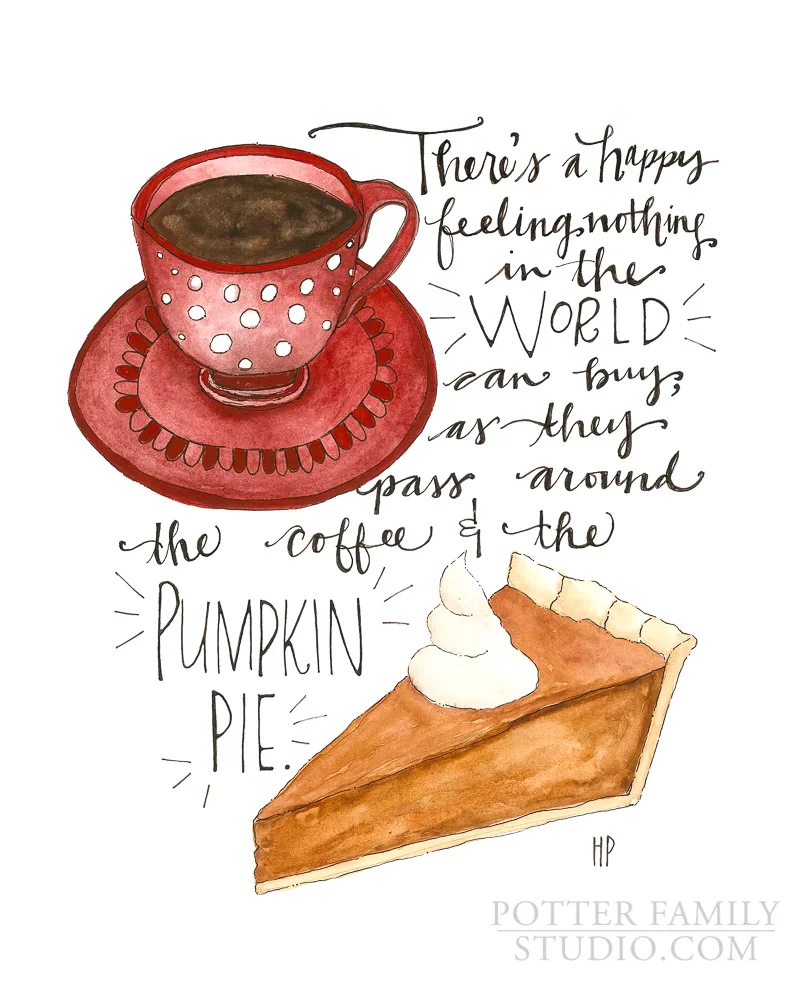 There's a happy
feeling, nothing
in the
WORLD
can buy,
as they
pass around
the coffee & the
PUMPKIN
PIE.
HP
POTTER FAMILY
STUDIO.COM